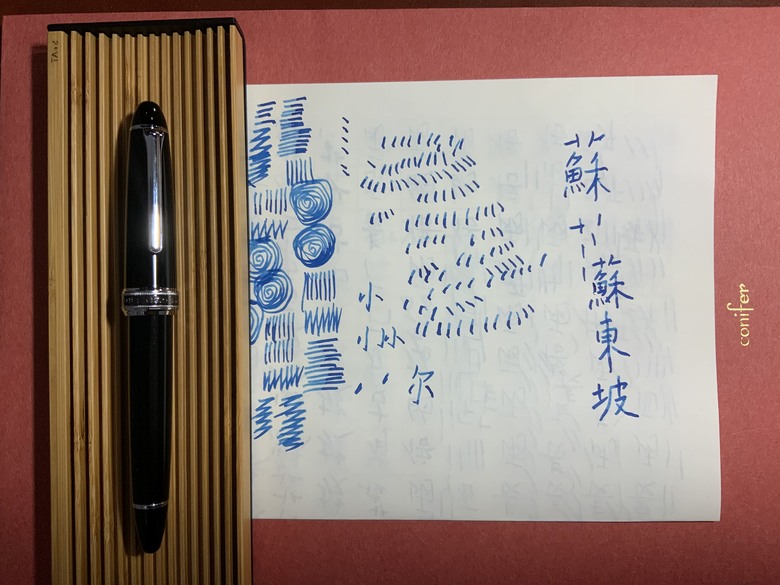 蘇 蘇東坡
尔
小
小
conifer